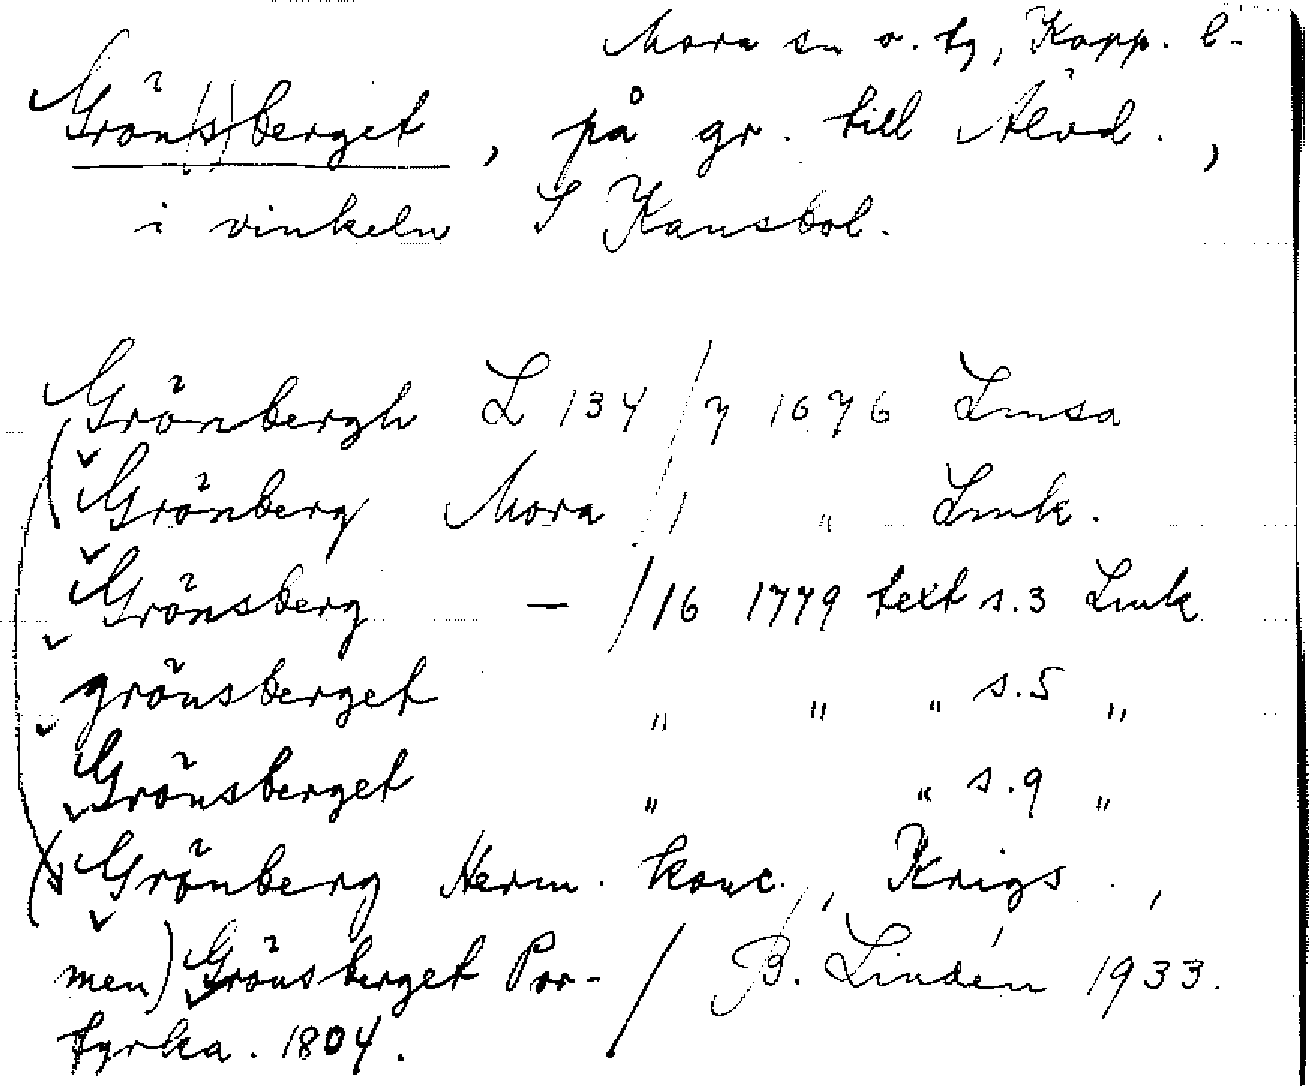 Mora sn o. tg, Kopp. l.
Grön(s)berget, på gr. till Älvd.,
i vinkeln S Kansbol.
Grönbergh L 134/7 1676 Lmsa
Grönberg Mora /1 " Lmk.
Grönsberg — /16 1779 text s.3 Lmk
grönsberget " " " s.5 "
Grönsberget " " s.9 "
Grönberg Herm. konc., Krigs.,
men) Grönsberget Por- / B. Lindén 1933.
fyrka. 1804.